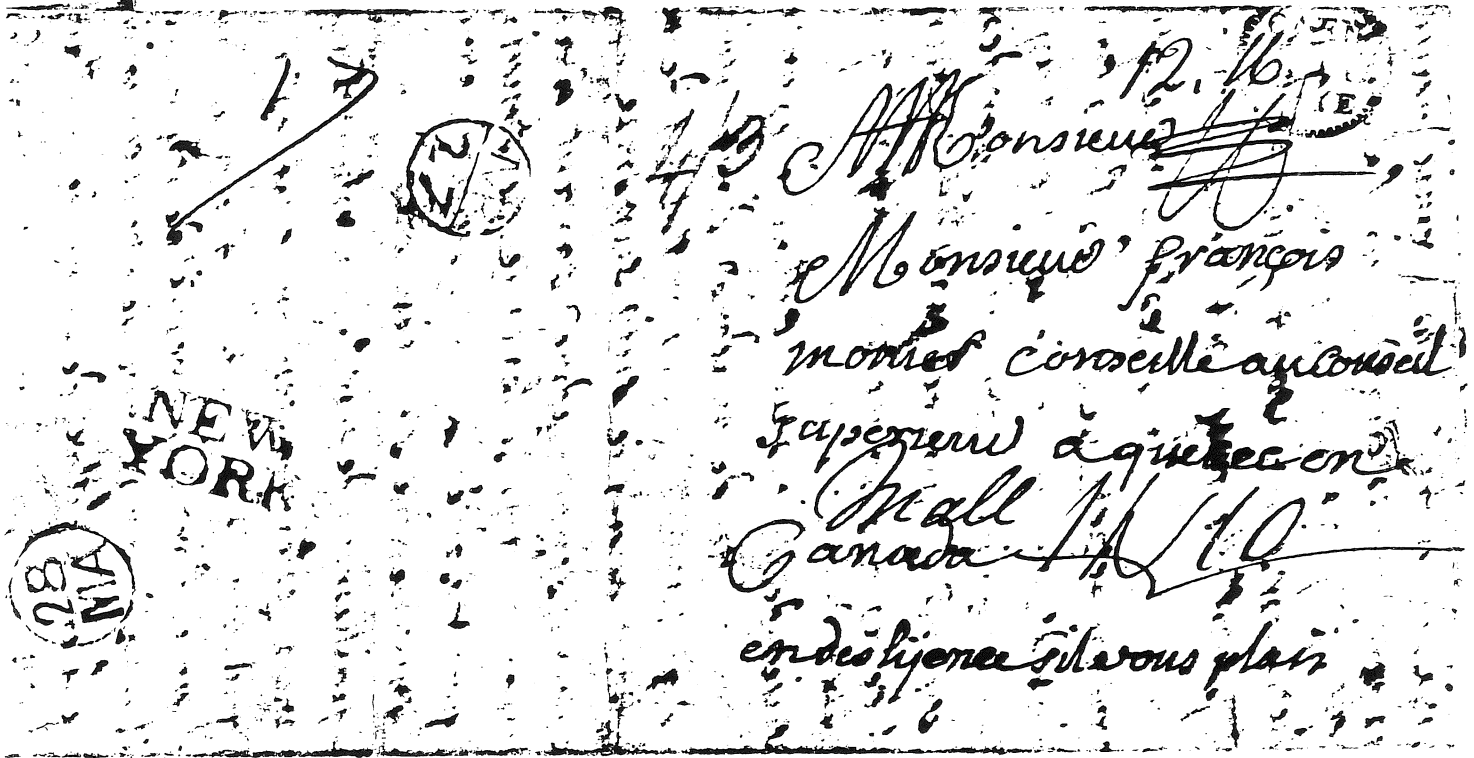 NEW
YORK
28
12. 16
A Monsieur
Monsieur françois
monier Conseille au Conseil
superieur a quebec en
Mall
Canada
en desligence sil vous plait